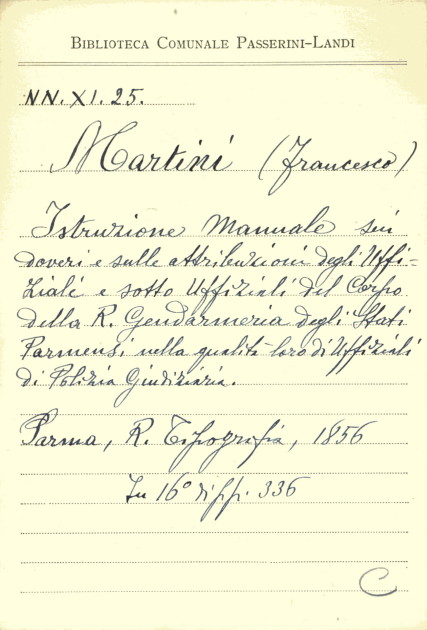 BIBLIOTECA COMUNALE PASSERINI-LANDI
NN. XI. 25.
Martini (Francesco)
Istruzione Manuale sui
doveri e sulle attribuzioni degli Uffi-
ziali e sotto Uffiziali del Corpo
della R. Gendarmeria degli Stati
Parmensi nella qualità loro di Uffiziali
di Polizia Giudiziaria.
Parma, R. Tipografia, 1856
In 16° di pp. 336
C